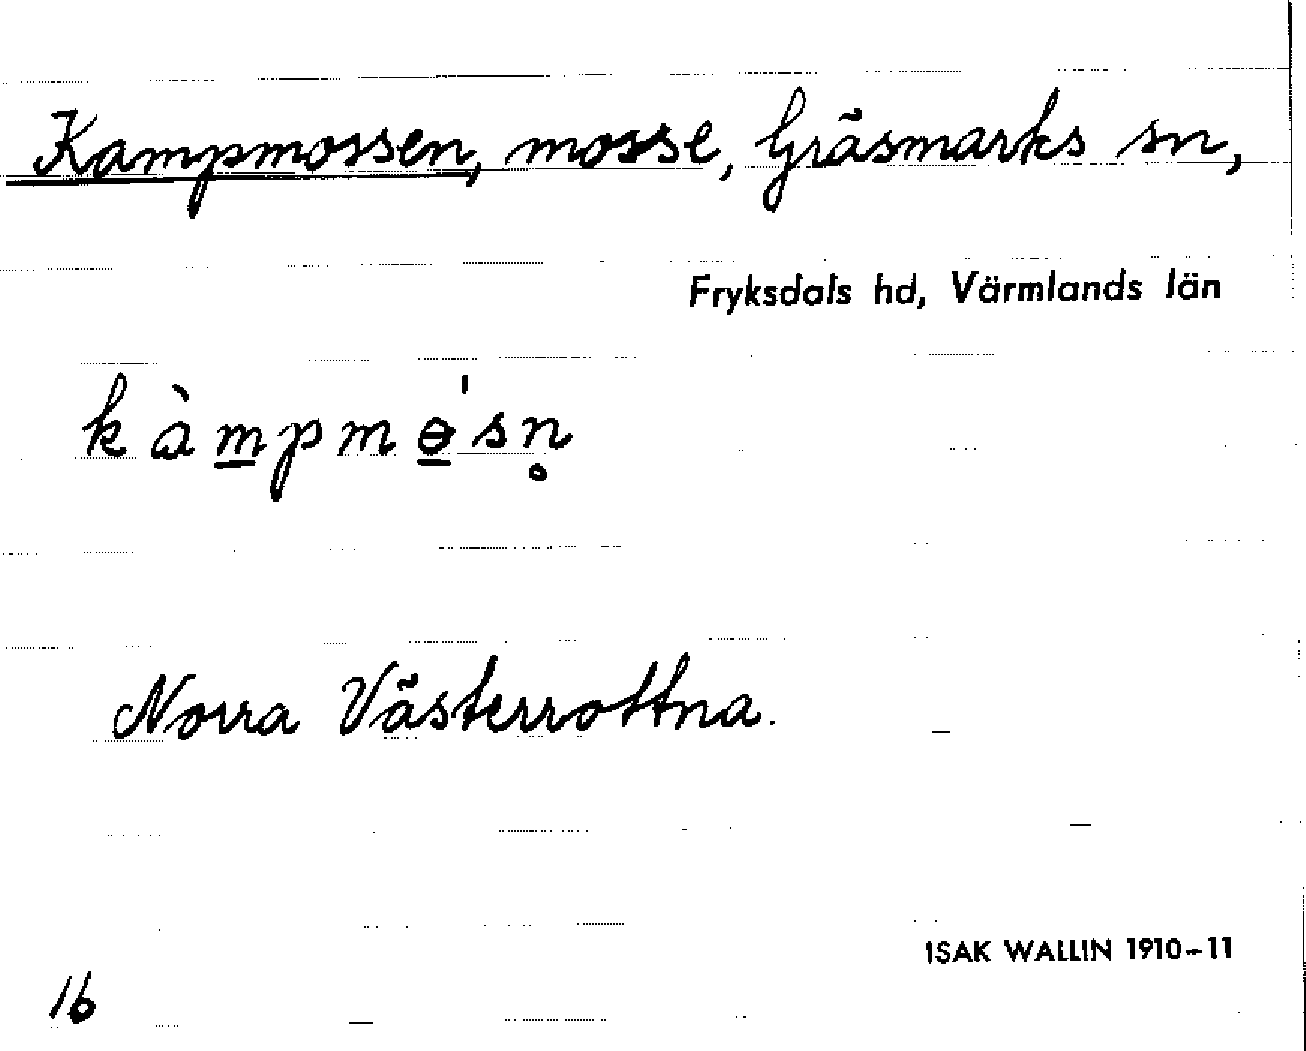 Kampmossen, mosse, Gräsmarks sn,
Fryksdals hd, Värmlands län
kàm̲pmɵ̲'sn̥
Norra Västerrottna.
ISAK WALLIN 1910–11
16